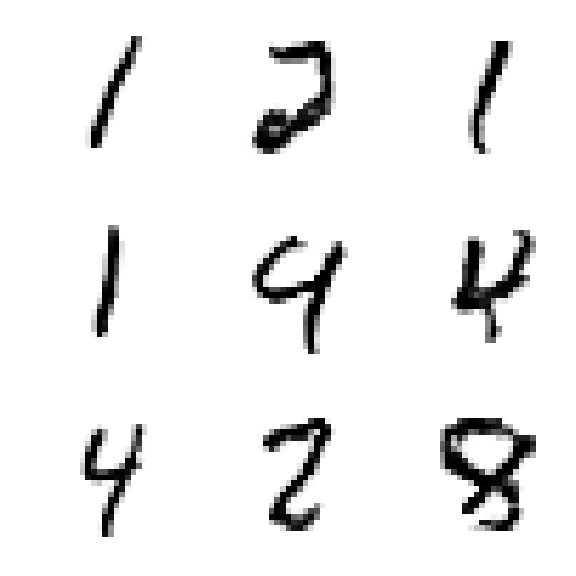 1 2 1
1 9 4
4 2 8